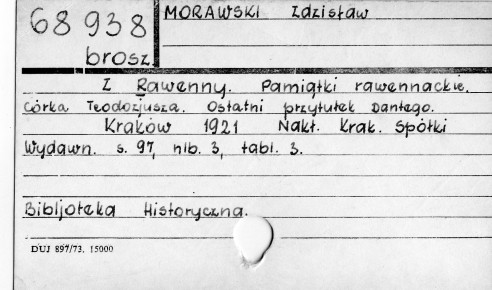 68938
brosz.
MORAWSKI Zdzisław
Z Rawenny. Pamiątki rawennackie.
Córka Teodozjusza. Ostatni przytułek Dantego.
Kraków 1921 Nakł. Krak. Spółki
Wydawn. s. 97, nlb. 3, tabl. 3.
Bibljoteka Historyczna.
DUJ 897/73. 15000